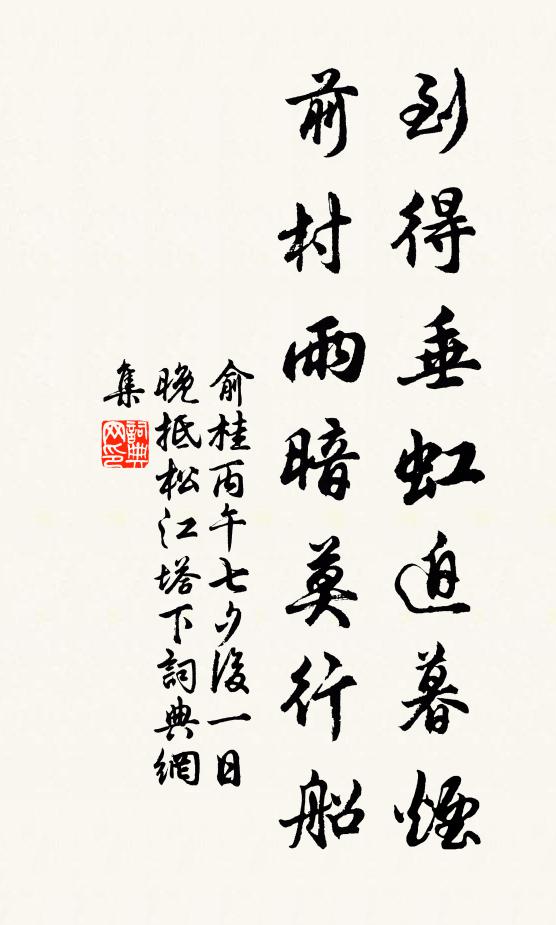 到得垂虹迫暮煙
前村雨暗莫行船
俞桂丙午七夕後一日
晚抵松江塔下詞典網
集
詞典
网印